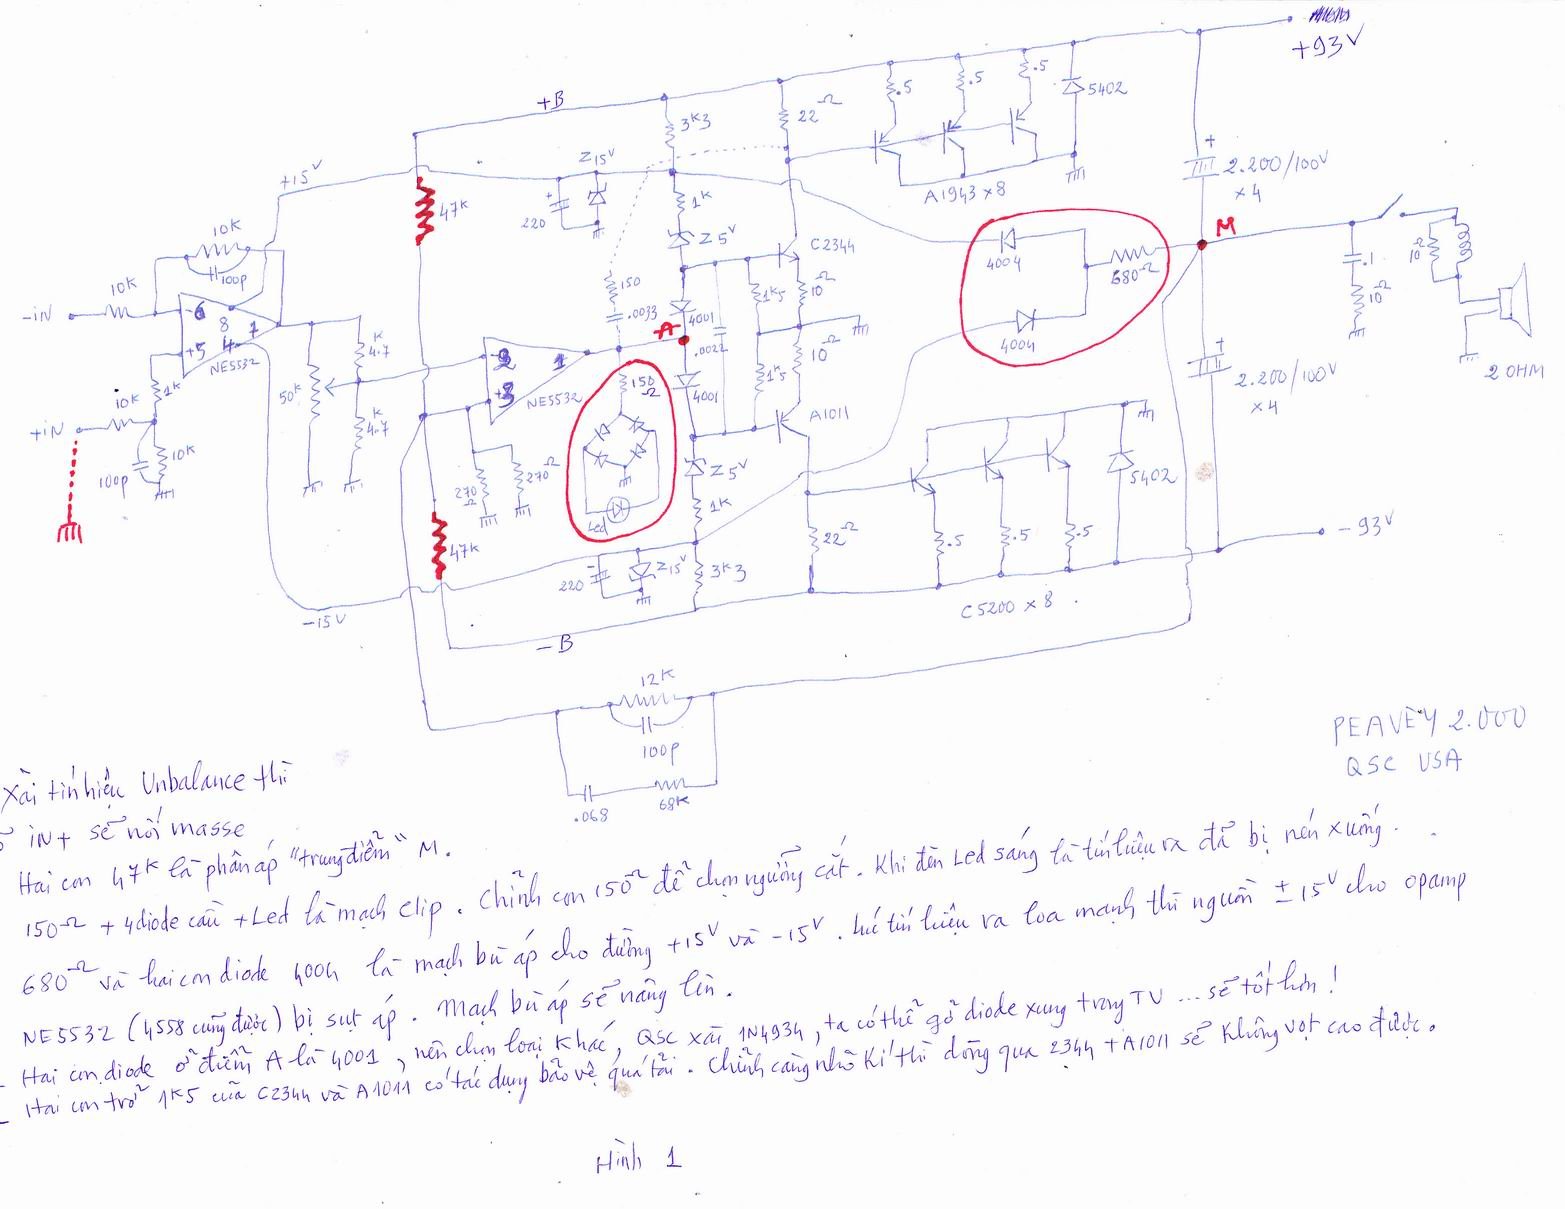 +93V
+B
3K3
22Ω
.5
.5
.5
5402
Z15V
+15V
220
47K
1K
Z5V
A1943 x 8
2.200/100V
x 4
10K
100p
10K
-iN
-6
8
1
+5
4
NE5532
C2344
4004
680Ω
M
.1
10Ω
10Ω
150
.0033
A
4001
.0022
1K5
10Ω
4004
10Ω
2 OHM
1K
4.7K
50K
4.7K
-2
+3
1
NE5532
150Ω
4001
1K5
A1011
2.200/100V
x 4
10K
+iN
10K
100p
270Ω
270Ω
Led
Z5V
1K
5402
47K
220
Z15V
3K3
22Ω
.5
.5
.5
-93V
C5200 x 8
-15V
-B
12K
100p
.068
68K
PEAVEY 2.000
QSC USA
Xài tín hiệu Unbalance thì
iN+ sẽ nối masse
Hai con 47K là phân áp "trung điểm" M.
150Ω + 4 diode cầu + Led là mạch clip. Chỉnh con 150Ω để chọn ngưỡng cắt. Khi đèn Led sáng là tín hiệu ra đã bị nén xuống.
680Ω và hai con diode 4004 là mạch bù áp cho đường +15V và -15V. Lúc tín hiệu ra loa mạnh thì nguồn ±15V cho opamp
NE5532 (4558 cũng được) bị sụt áp. Mạch bù áp sẽ nâng lên.
- Hai con diode ở điểm A là 4001, nên chọn loại khác, QSC xài 1N4934, ta có thể gỡ diode xung trong TV ... sẽ tốt hơn!
- Hai con trở 1K5 của C2344 và A1011 có tác dụng bảo vệ quá tải. Chỉnh càng nhỏ kí thì dòng qua 2344 + A1011 sẽ không vọt cao được.
Hình 1